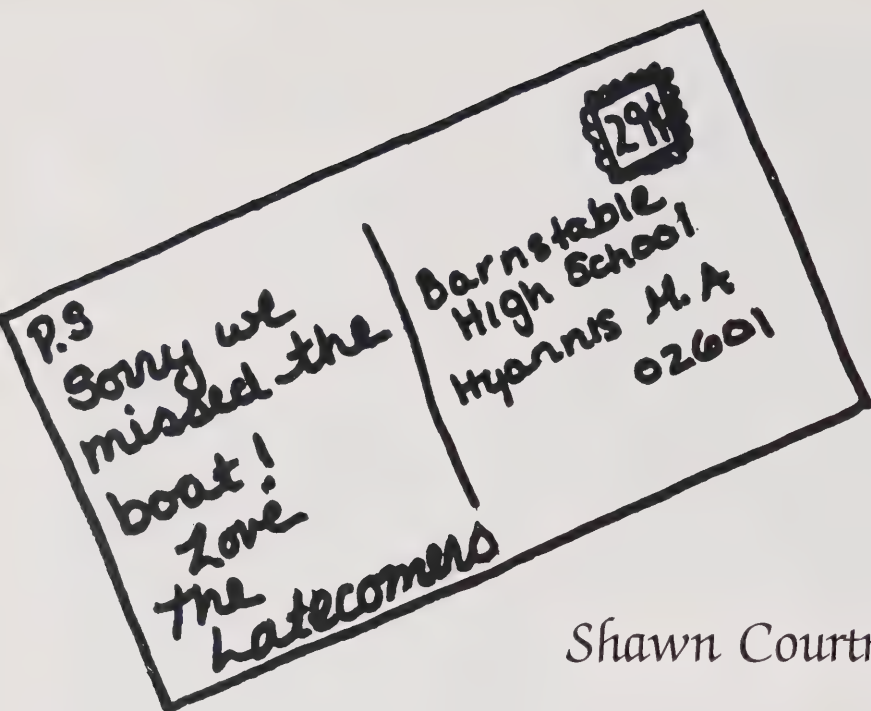 29¢
P.S
Sorry we
missed the
boat!
Love
the
Latecomers
Barnstable
High School
Hyannis M.A
02601
Shawn